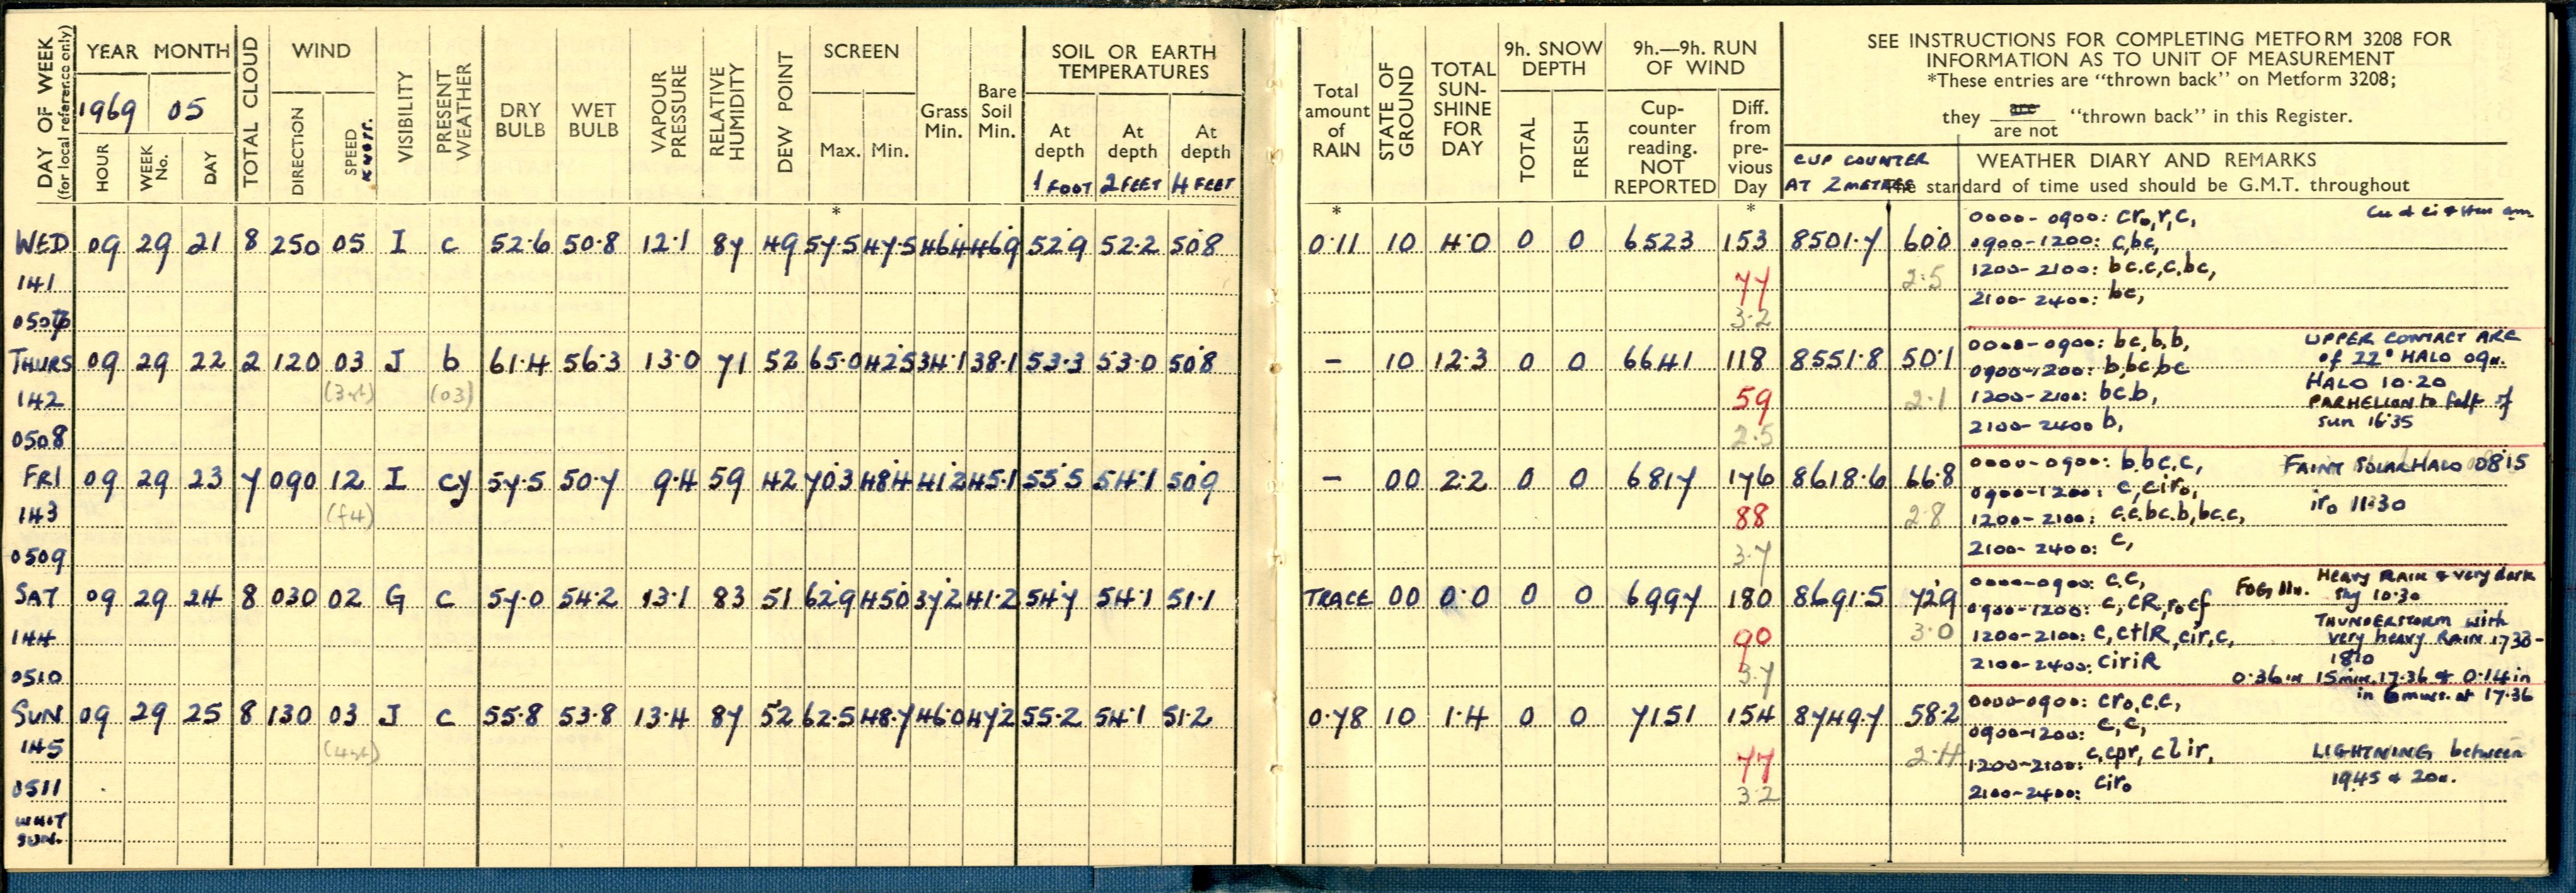 DAY OF WEEK (for local reference only)
YEAR MONTH
1969 05
HOUR WEEK No. DAY
TOTAL CLOUD
WIND
DIRECTION SPEED KNOTS.
VISIBILITY
PRESENT WEATHER
DRY BULB
WET BULB
VAPOUR PRESSURE
RELATIVE HUMIDITY
DEW POINT
SCREEN
Max. Min.
Grass Min.
Bare Soil Min.
SOIL OR EARTH TEMPERATURES
At depth 1 FOOT
At depth 2 FEET
At depth 4 FEET
Total amount of RAIN
STATE OF GROUND
TOTAL SUN-SHINE FOR DAY
9h. SNOW DEPTH
TOTAL FRESH
9h.—9h. RUN OF WIND
Cup-counter reading. NOT REPORTED
Diff. from pre-vious Day
SEE INSTRUCTIONS FOR COMPLETING METFORM 3208 FOR
INFORMATION AS TO UNIT OF MEASUREMENT
*These entries are "thrown back" on Metform 3208;
they are / are not "thrown back" in this Register.
CUP COUNTER
AT 2 METRES
WEATHER DIARY AND REMARKS
The standard of time used should be G.M.T. throughout
* * *
WED 09 29 21 8 250 05 I c 52.6 50.8 12.1 87 49 57.5 47.5 46.4 46.9 52.9 52.2 50.8 0.11 10 4.0 0 0 6523 153 8501.7 60.0
141
77 2.5
0507
3.2
0000-0900: cr₀,r,c,
0900-1200: c,bc,
1200-2100: bc.c,c,bc,
2100-2400: bc,
THURS 09 29 22 2 120 03 J b 61.4 56.3 13.0 71 52 65.0 42.5 34.1 38.1 53.3 53.0 50.8 – 10 12.3 0 0 6641 118 8551.8 50.1
(03)
142
59 2.1
0508
2.5
0000-0900: bc,b,b,
0900-1200: b,bc,bc
1200-2100: bc.b,
2100-2400 b,
UPPER CONTACT ARC
of 22° HALO 09h.
HALO 10.20
PARHELION to left of
sun 16.35
FRI 09 29 23 7 090 12 I cy 57.5 50.7 9.4 59 42 70.3 48.4 41.2 45.1 55.5 54.1 50.9 – 00 2.2 0 0 6817 176 8618.6 66.8
(f4)
143
88 2.8
0509
3.7
0000-0900: b,bc.c,
0900-1200: c,cir₀,
1200-2100: c.c.bc.b,bc.c,
2100-2400: c,
FAINT SOLAR HALO 0815
ir₀ 11.30
SAT 09 29 24 8 030 02 G c 57.0 54.2 13.1 83 51 62.9 45.0 37.2 41.2 54.7 54.1 51.1 TRACE 00 0.0 0 0 6997 180 8691.5 72.9
144
90 3.0
0510
3.7
0000-0900: c,c,
0900-1200: c, cR,r₀cf
1200-2100: c,ctlR,cir,c,
2100-2400: ciriR
FOG 11h.
HEAVY RAIN & very dark
sky 10.30
THUNDERSTORM with
very heavy RAIN 1733-
1810
0.36 in 15 min. 17.36 & 0.14 in
in 6 mins. at 17.36
SUN 09 29 25 8 130 03 J c 55.8 53.8 13.4 87 52 62.5 48.7 46.0 47.2 55.2 54.1 51.2 0.78 10 1.4 0 0 7151 154 8749.7 58.2
145
77 2.4
0511
3.2
WHIT
SUN.
0000-0900: cr₀,c,c,
0900-1200: c,c,
1200-2100: c,cpr, clir,
2100-2400: cir₀
LIGHTNING between
1945 & 20h.